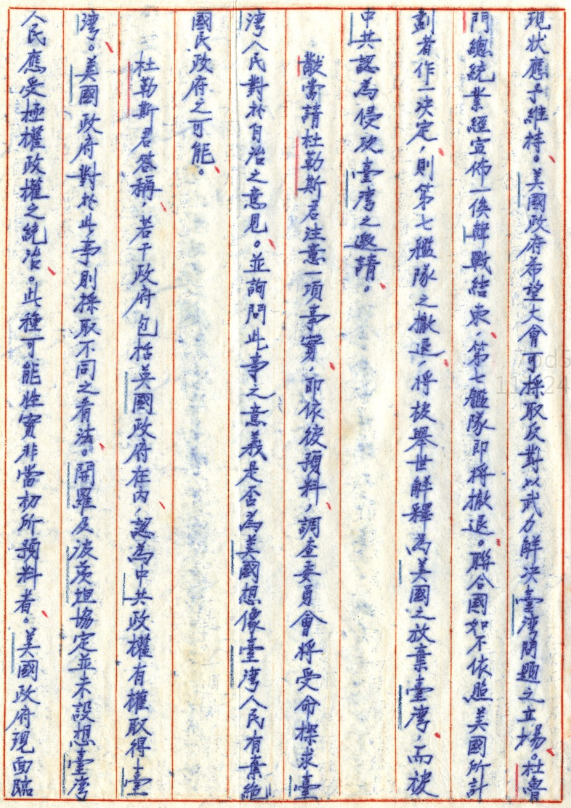 現狀應予維持。美國政府希望大會可採取反對以武力解決臺灣問題之立場、杜魯
門總統業經宣佈一俟韓戰結束、第七艦隊即將撤退。聯合國如不依照美國所計
劃者作一決定，則第七艦隊之撤退，將被舉世解釋為美國之放棄臺灣，而被
中共認為侵攻臺灣之邀請。
猷當請杜勒斯君注意一項事實，即依彼預料，調查委員會將受命探求臺
灣人民對於自治之意見。並詢問此事之意義是否為美國想像臺灣人民有棄絕
國民政府之可能。
杜勒斯君答稱，若干政府包括英國政府在內，認為中共政權有權取得臺
灣。美國政府對於此事則採取不同之看法。開羅及波茨坦協定並未設想臺灣
人民應受極權政權之統治，此種可能性實非當初所預料者。美國政府現面臨